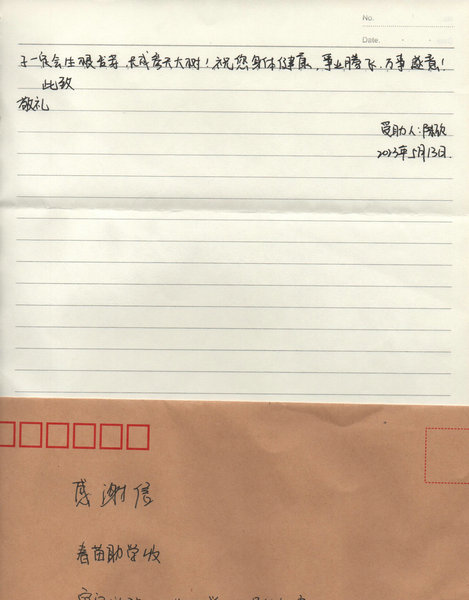 No.
Date.
子一定会生根发芽,长成参天大树!祝您身体健康,事业腾飞,万事随意!
此致
敬礼
受助人:陈欣
2023年5月13日.
感谢信
春苗助学收